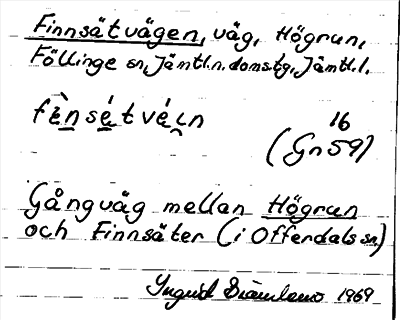 Finnsätvägen, väg, Högrun,
Föllinge sn, Jämtl.n. doms.tg, Jämtl.l.
fènsétvéın
16
(Gn 59)
Gångväg mellan Högrun
och Finnsäter (i Offerdals sn)
Ingrid 1969